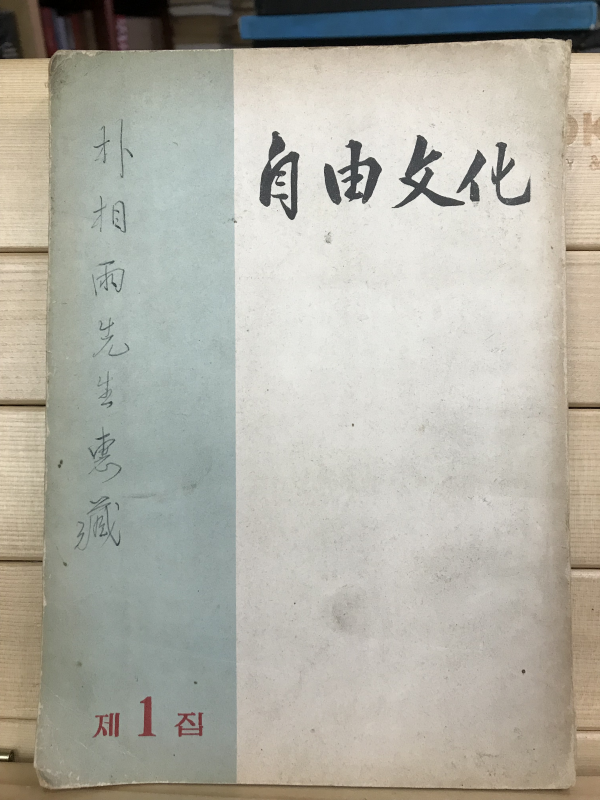 自由文化
朴相雨先生惠藏
제1집